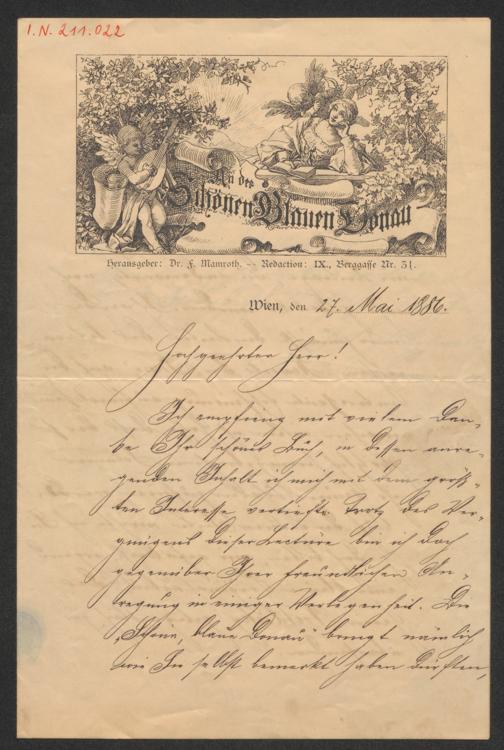 I.N. 211.022
An der
Schönen Blauen Donau
Herausgeber: Dr. F. Mamroth. — Redaction: IX., Berggasse Nr. 31.
Wien, den 27. Mai 1886.
Hochgeehrter Herr!
Ich empfing mit vielem Dan-
ke Ihr schönes Buch, in dessen anre-
genden Inhalt ich mich mit dem größ-
ten Interesse vertiefte. Trotz des Ver-
gnügens dieser Lecture bin ich doch
gegenüber Ihrer freundlichen An-
regung in einiger Verlegenheit. Die
„Schöne, blaue Donau" bringt nämlich
wie Sie selbst bemerkt haben dürften,